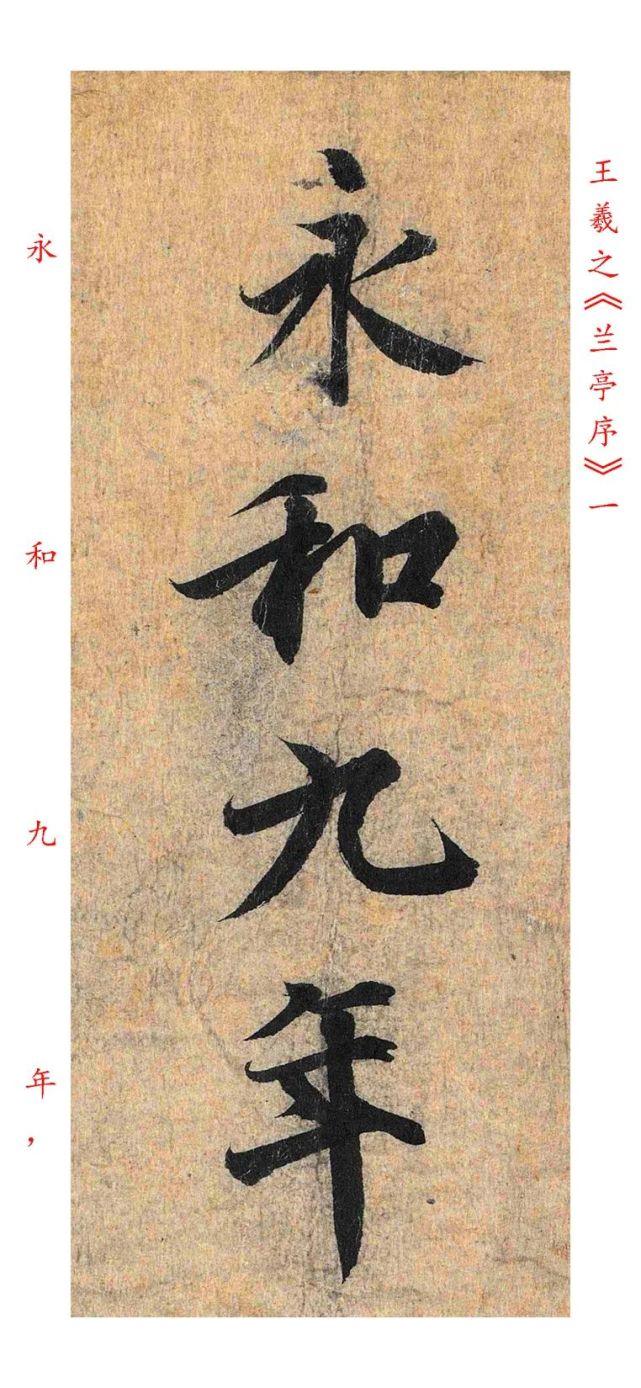 王羲之《兰亭序》一
永和九年
永和九年，